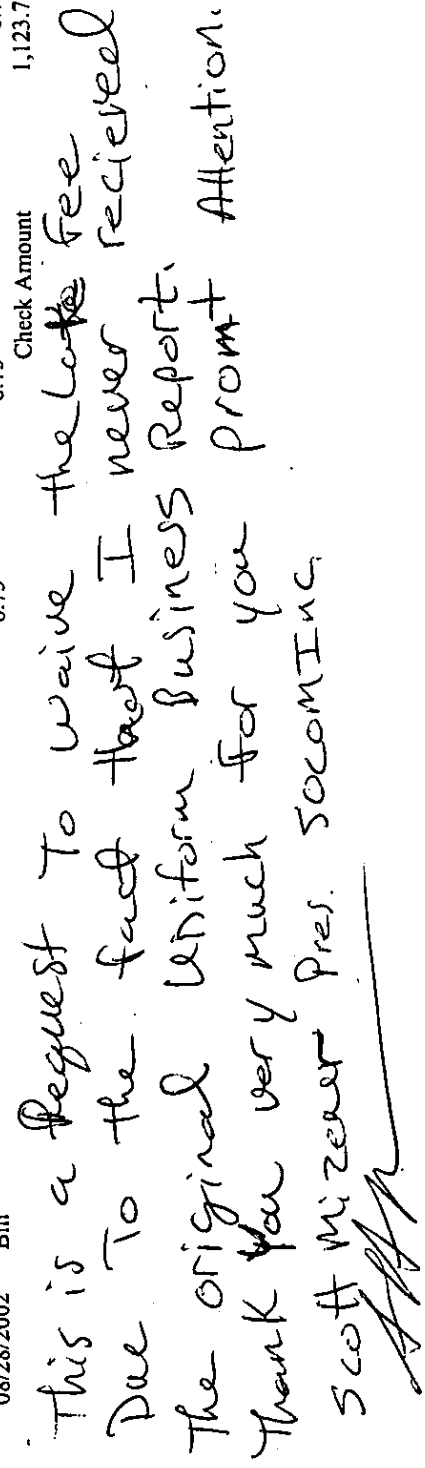 08/28/2002 Bill
Check Amount 1,123.7
This is a Request To waive the Late Fee
Due To the fact that I never recieved
The original Uniform Business Report.
Thank you very much for you promt Attention.
Scott Mizener Pres. SOCOM Inc.